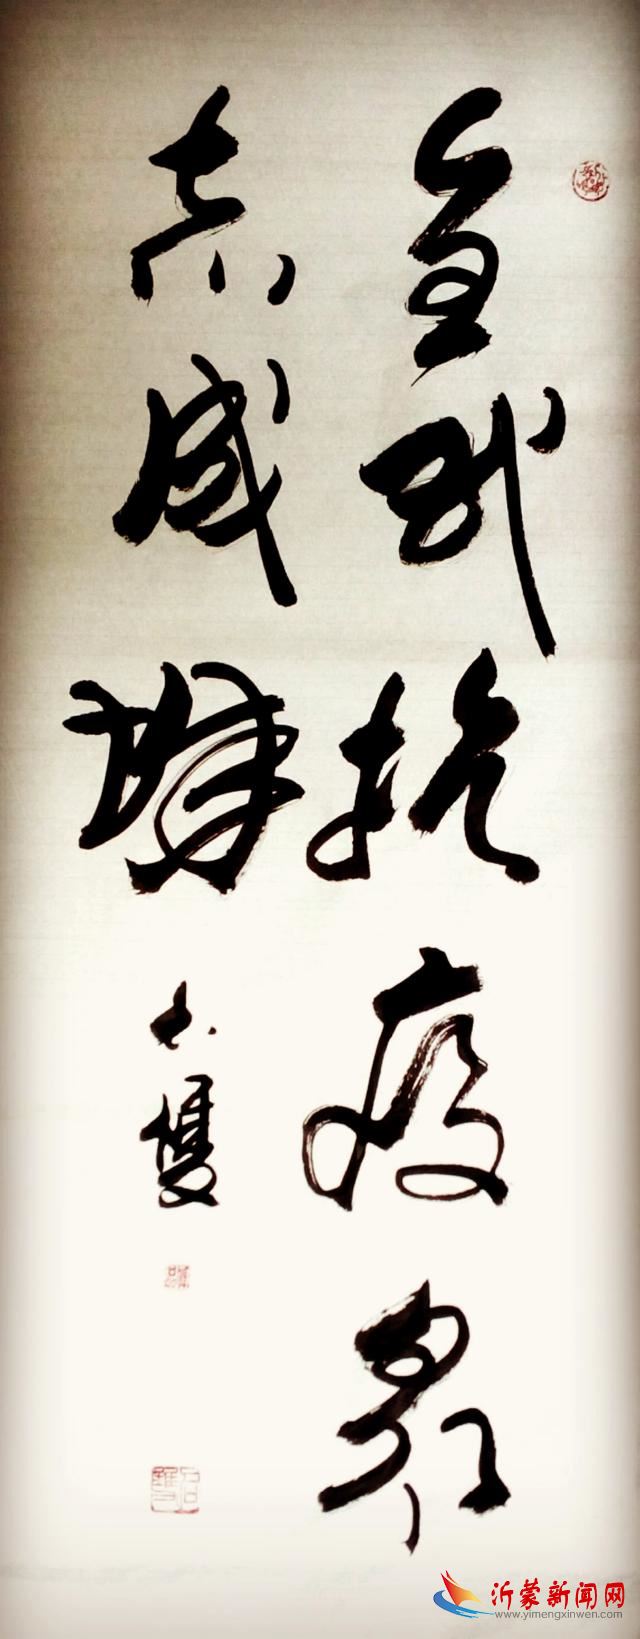 全民抗疫众
志成城
沂蒙新闻网
www.yimengxinwen.com